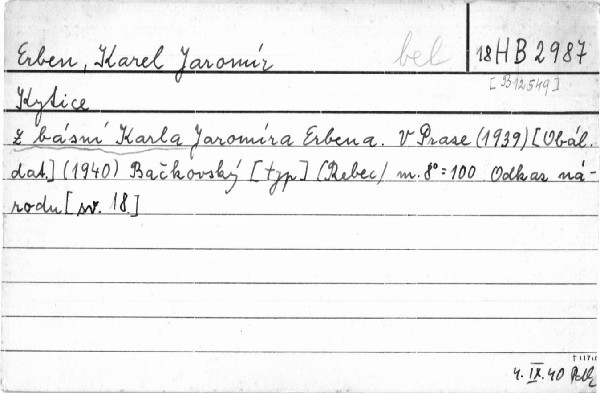 Erben, Karel Jaromír bel 18 H B 2987
[B12549]
Kytice
z básní Karla Jaromíra Erbena. V Praze (1939) [Obál.
dat.] (1940) Bačkovský [typ] (Rebec) m. 8° = 100 Odkaz ná-
rodu [sv. 18.]
4. IX. 40